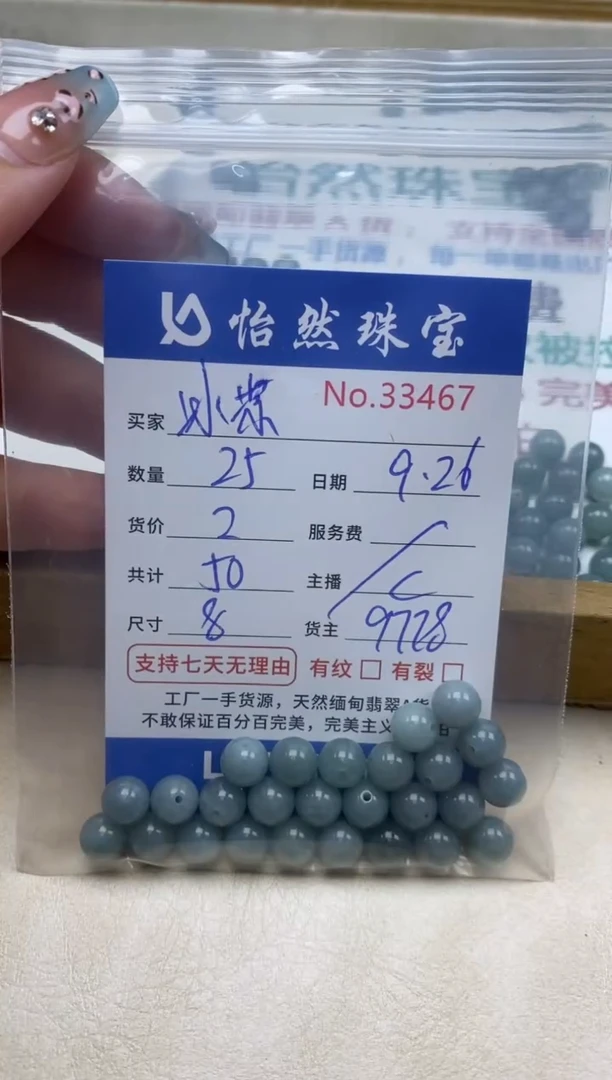 怡然珠宝
No.33467
买家 冰蝶
数量 25 日期 9.26
货价 2 服务费 /
共计 50 主播 C
尺寸 8 货主 9728
支持七天无理由 有纹 有裂
工厂一手货源，天然缅甸翡翠A货
不敢保证百分百完美，完美主义